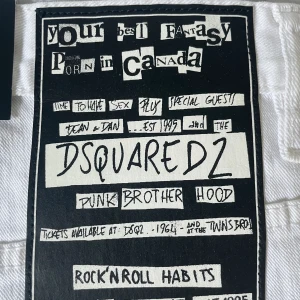 your best FanTasy
PORN in CANADA
TIME TO HAVE SEX PLUS SPECIAL GUESTS
DEAN & DAN ... EST 1995 and THE
DSQUARED2
PUNK BROTHER HOOD
TICKETS AVAILABLE AT: DSQ2 .. 1964 - AND AT THE TWINS BRO
ROCK'N ROLL HABITS
1995